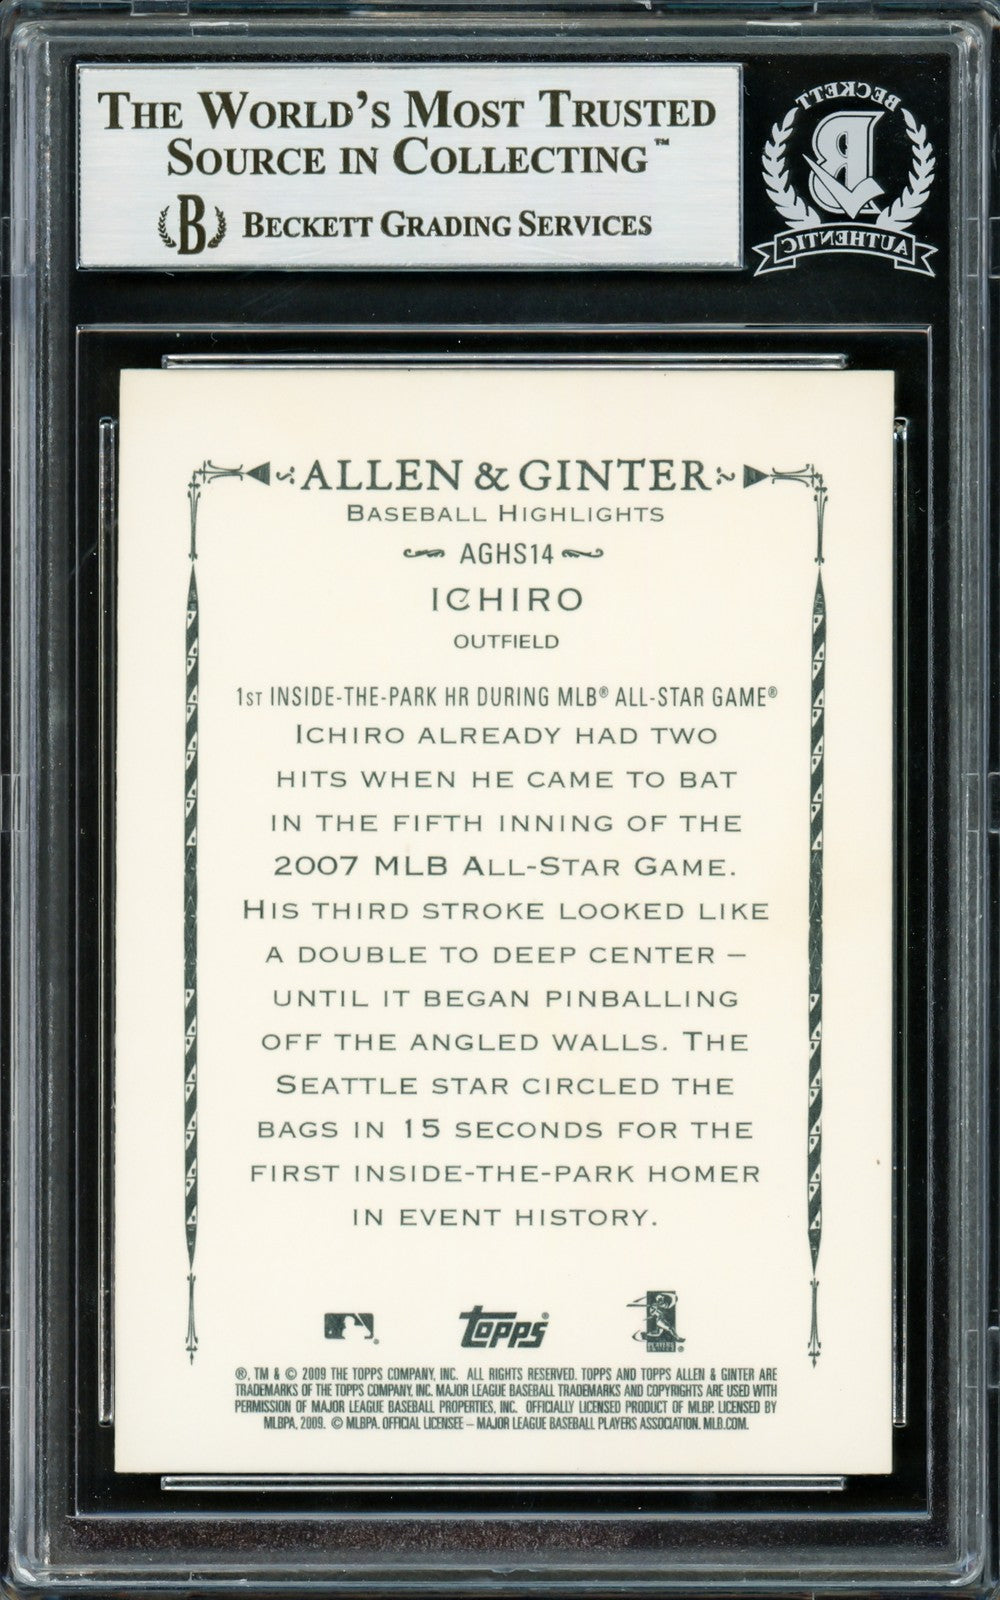 THE WORLD'S MOST TRUSTED
SOURCE IN COLLECTING™
B BECKETT GRADING SERVICES
BECKETT
B
AUTHENTIC
ALLEN & GINTER
BASEBALL HIGHLIGHTS
AGHS14
ICHIRO
OUTFIELD
1ST INSIDE-THE-PARK HR DURING MLB® ALL-STAR GAME®
ICHIRO ALREADY HAD TWO
HITS WHEN HE CAME TO BAT
IN THE FIFTH INNING OF THE
2007 MLB ALL-STAR GAME.
HIS THIRD STROKE LOOKED LIKE
A DOUBLE TO DEEP CENTER –
UNTIL IT BEGAN PINBALLING
OFF THE ANGLED WALLS. THE
SEATTLE STAR CIRCLED THE
BAGS IN 15 SECONDS FOR THE
FIRST INSIDE-THE-PARK HOMER
IN EVENT HISTORY.
Topps®
®, TM & © 2009 THE TOPPS COMPANY, INC. ALL RIGHTS RESERVED. TOPPS AND TOPPS ALLEN & GINTER ARE
TRADEMARKS OF THE TOPPS COMPANY, INC. MAJOR LEAGUE BASEBALL TRADEMARKS AND COPYRIGHTS ARE USED WITH
PERMISSION OF MAJOR LEAGUE BASEBALL PROPERTIES, INC. OFFICIALLY LICENSED PRODUCT OF MLBP. LICENSED BY
MLBPA, 2009. © MLBPA. OFFICIAL LICENSEE – MAJOR LEAGUE BASEBALL PLAYERS ASSOCIATION. MLB.COM.